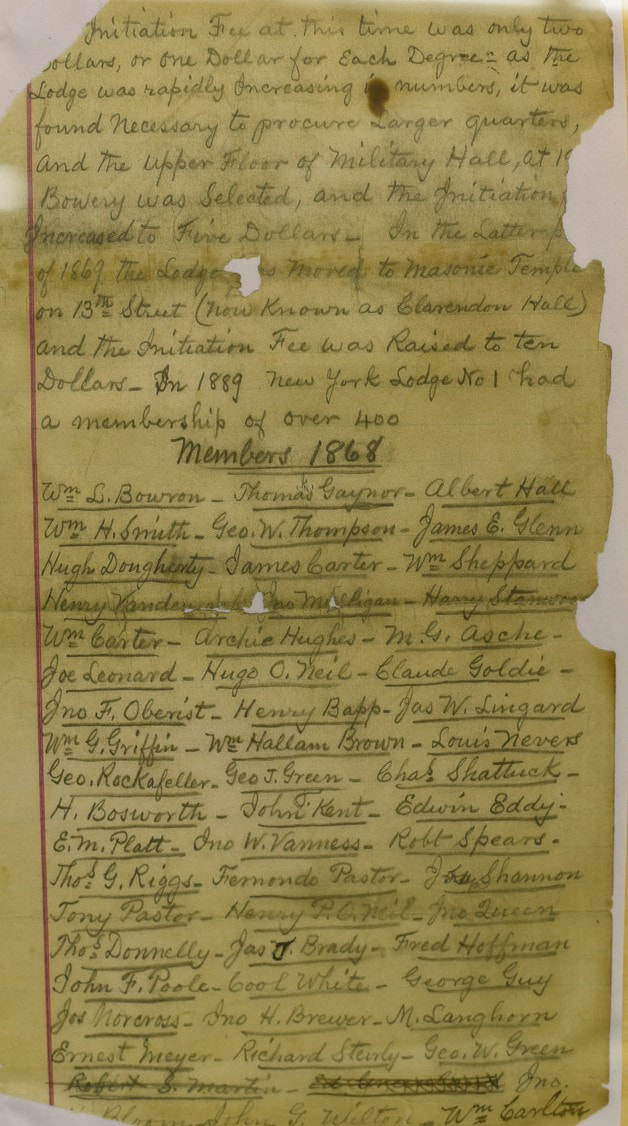 Initiation Fee at this time was only two
Dollars, or One Dollar for Each Degree = as the
Lodge was rapidly Increasing in numbers, it was
found Necessary to procure Larger quarters,
and the upper Floor of Military Hall, at 19
Bowery was Selected, and the Initiation
Increased to Five Dollars - In the Latter
of 1869 the Lodge was moved to Masonic Temple
on 13th Street (now Known as Clarendon Hall)
and the Initiation Fee was Raised to ten
Dollars - In 1889 New York Lodge No 1 had
a membership of over 400
Members 1868
Wm L. Bowron - Thomas Gaynor - Albert Hall
Wm H. Smith - Geo. W. Thompson - James E. Glenn
Hugh Dougherty - James Carter - Wm Sheppard
Henry Jno Mulligan - Harry Stanwood
Wm Carter - Archie Hughes - M. G. Asche -
Joe Leonard - Hugo O. Neil - Claude Goldie -
Jno F. Oberist - Henry Bapp - Jas W. Lingard
Wm G. Griffin - Wm Hallam Brown - Louis Nevers
Geo. Rockafeller - Geo J. Green - Chas Shattuck -
H. Bosworth - John F. Kent - Edwin Eddy -
E. M. Platt - Jno W. Vanness - Robt Spears -
Thos G. Riggs - Fernando Pastor - Shannon
Tony Pastor - Henry P. O. Neil - Jno Queen
Thos Donnelly - Jas J. Brady - Fred Hoffman
John F. Poole - Cool White - George Guy
Jos Norcross - Jno H. Brewer - M. Langhorn
Ernest Meyer - Richard Steirly - Geo. W. Green
Robert S. Martin - Jno.
Bloom John G. Wilton - Wm Carlton